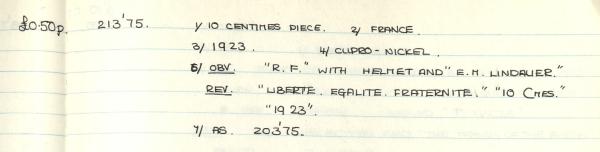 £0·50p. 213'75. 1/ 10 CENTIMES PIECE. 2/ FRANCE.
3/ 1923. 4/ CUPRO-NICKEL.
5/ OBV. "R.F." WITH HELMET AND "E.M. LINDAUER."
REV. "LIBERTE. EGALITE. FRATERNITE." "10 CMES."
"1923".
7/ AS. 203'75.